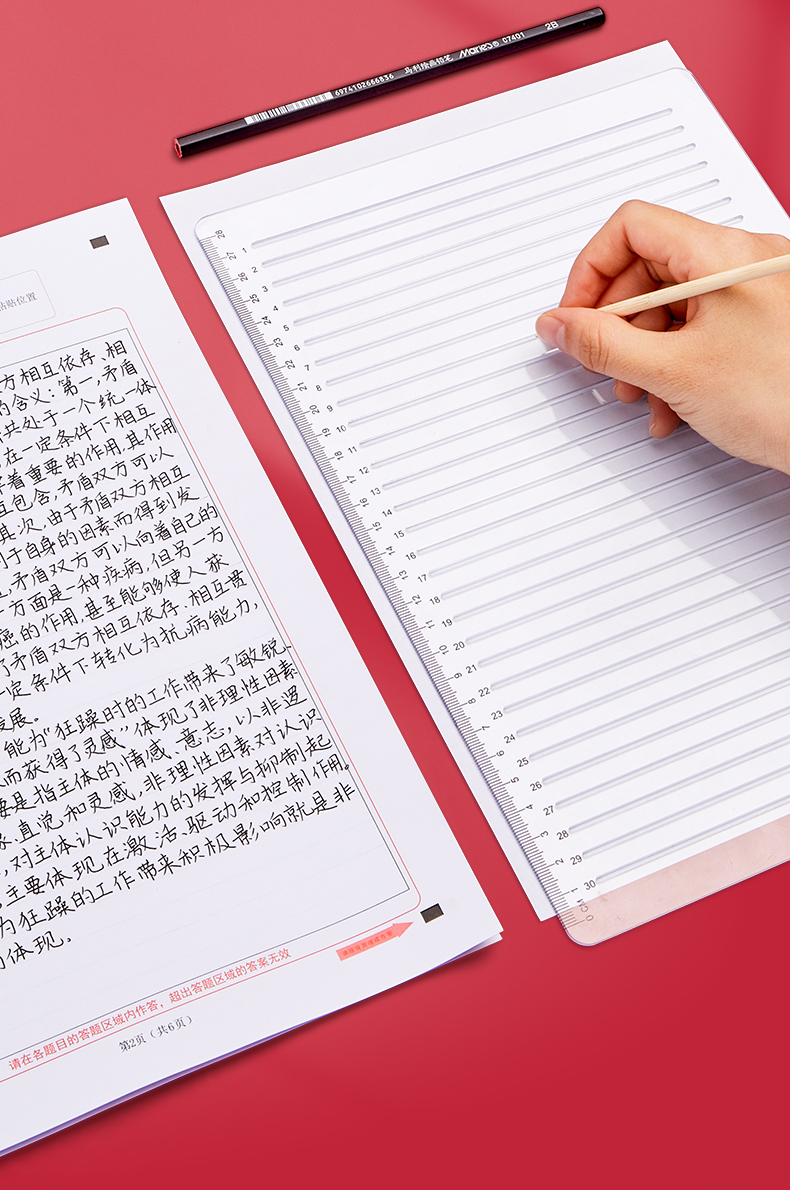 6974102666836 马利绘画铅笔 Marie's® C7401 2B
贴位置
方相互依存、相
的含义:第一,矛盾
共处于一个统一体
在一定条件下相互
着重要的作用,其作用
互包含,矛盾双方可以
其次,由于矛盾双方相互
于自身的因素而得到发
,矛盾双方可以向着自己的
方面是一种疾病,但另一方
癌的作用,甚至能够使人获
了矛盾双方相互依存、相互贯
一定条件下转化为抗病能力,
发展。
能为"狂躁时的工作带来了敏锐、
而获得了灵感"体现了非理性因素
要是指主体的情感、意志,以非逻
象、直觉和灵感,非理性因素对认识
,对主体认识能力的发挥与抑制起
,主要体现在激活、驱动和控制作用。
为狂躁的工作带来积极影响就是非
的体现。
请在各题目的答题区域内作答,超出答题区域的答案无效
第2页(共6页)
28
27 1
26 2
25 3
24 4
23 5
22 6
7
21 8
20 9
19 10
18 11
17 12
16 13
15 14
14 15
16
13 17
12 18
11 19
10 20
9 21
8 22
7 23
6 24
5 25
26
4 27
3 28
2 29
1 30
0 CM